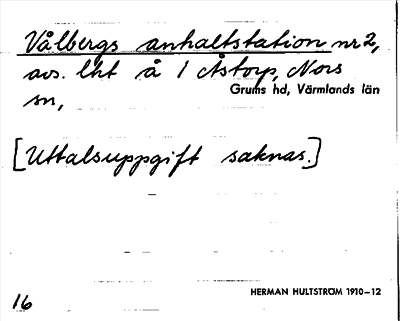 Vålbergs anhaltstation nr 2,
avs. lht å 1 Åstorp, Nors
sn,
Grums hd, Värmlands län
[Uttalsuppgift saknas.]
HERMAN HULTSTRÖM 1910–12
16